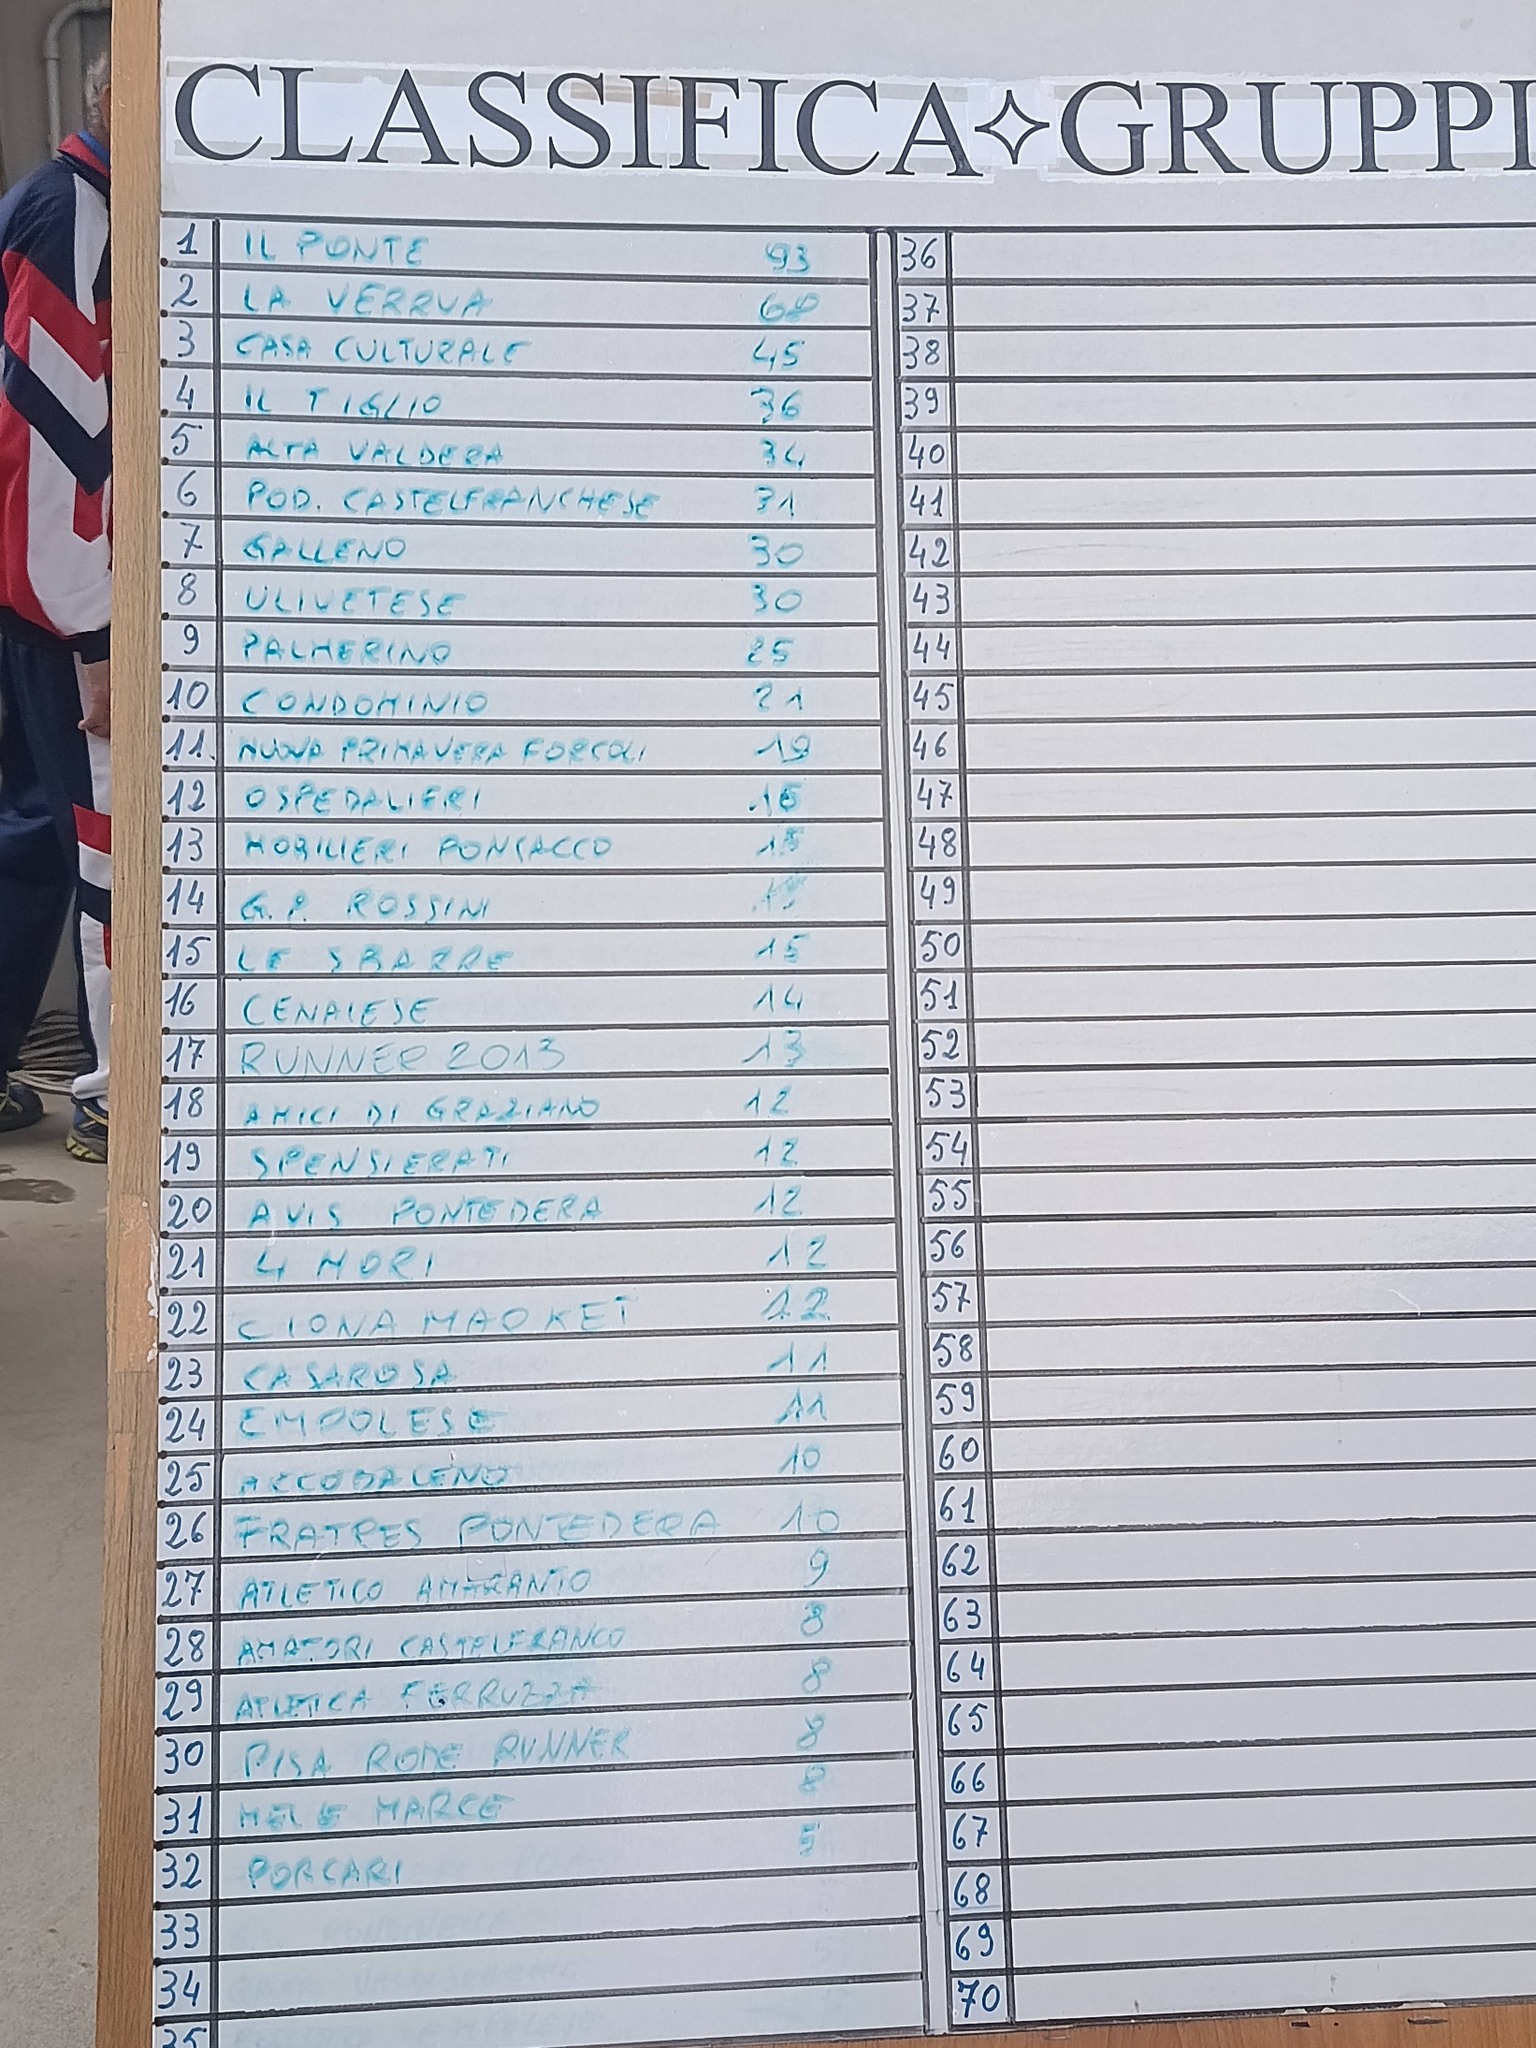 CLASSIFICA✧GRUPPI
1 IL PONTE 93
2 LA VERRUA 68
3 CASA CULTURALE 45
4 IL TIGLIO 36
5 ALTA VALDERA 34
6 POD. CASTELFRANCHESE 31
7 GALLENO 30
8 ULIVETESE 30
9 PALMERINO 25
10 CONDOMINIO 21
11. NUOVA PRIMAVERA FORCOLI 19
12 OSPEDALIERI 16
13 MOBILIERI PONSACCO 15
14 G.P. ROSSINI
15 LE SBARRE 15
16 CENAIESE 14
17 RUNNER 2013 13
18 AMICI DI GRAZIANO 12
19 SPENSIERATI 12
20 AVIS PONTEDERA 12
21 4 MORI 12
22 CIONAMARKET 12
23 CASAROSA 11
24 EMPOLESE 11
25 ARCOBALENO 10
26 FRATRES PONTEDERA 10
27 ATLETICO AMARANTO 9
28 AMATORI CASTELFRANCO 8
29 ATLETICA FERRUZZA 8
30 PISA RODE RUNNER 8
31 MEL E MARCE 8
32 PORCARI 5
33
34
35
36
37
38
39
40
41
42
43
44
45
46
47
48
49
50
51
52
53
54
55
56
57
58
59
60
61
62
63
64
65
66
67
68
69
70